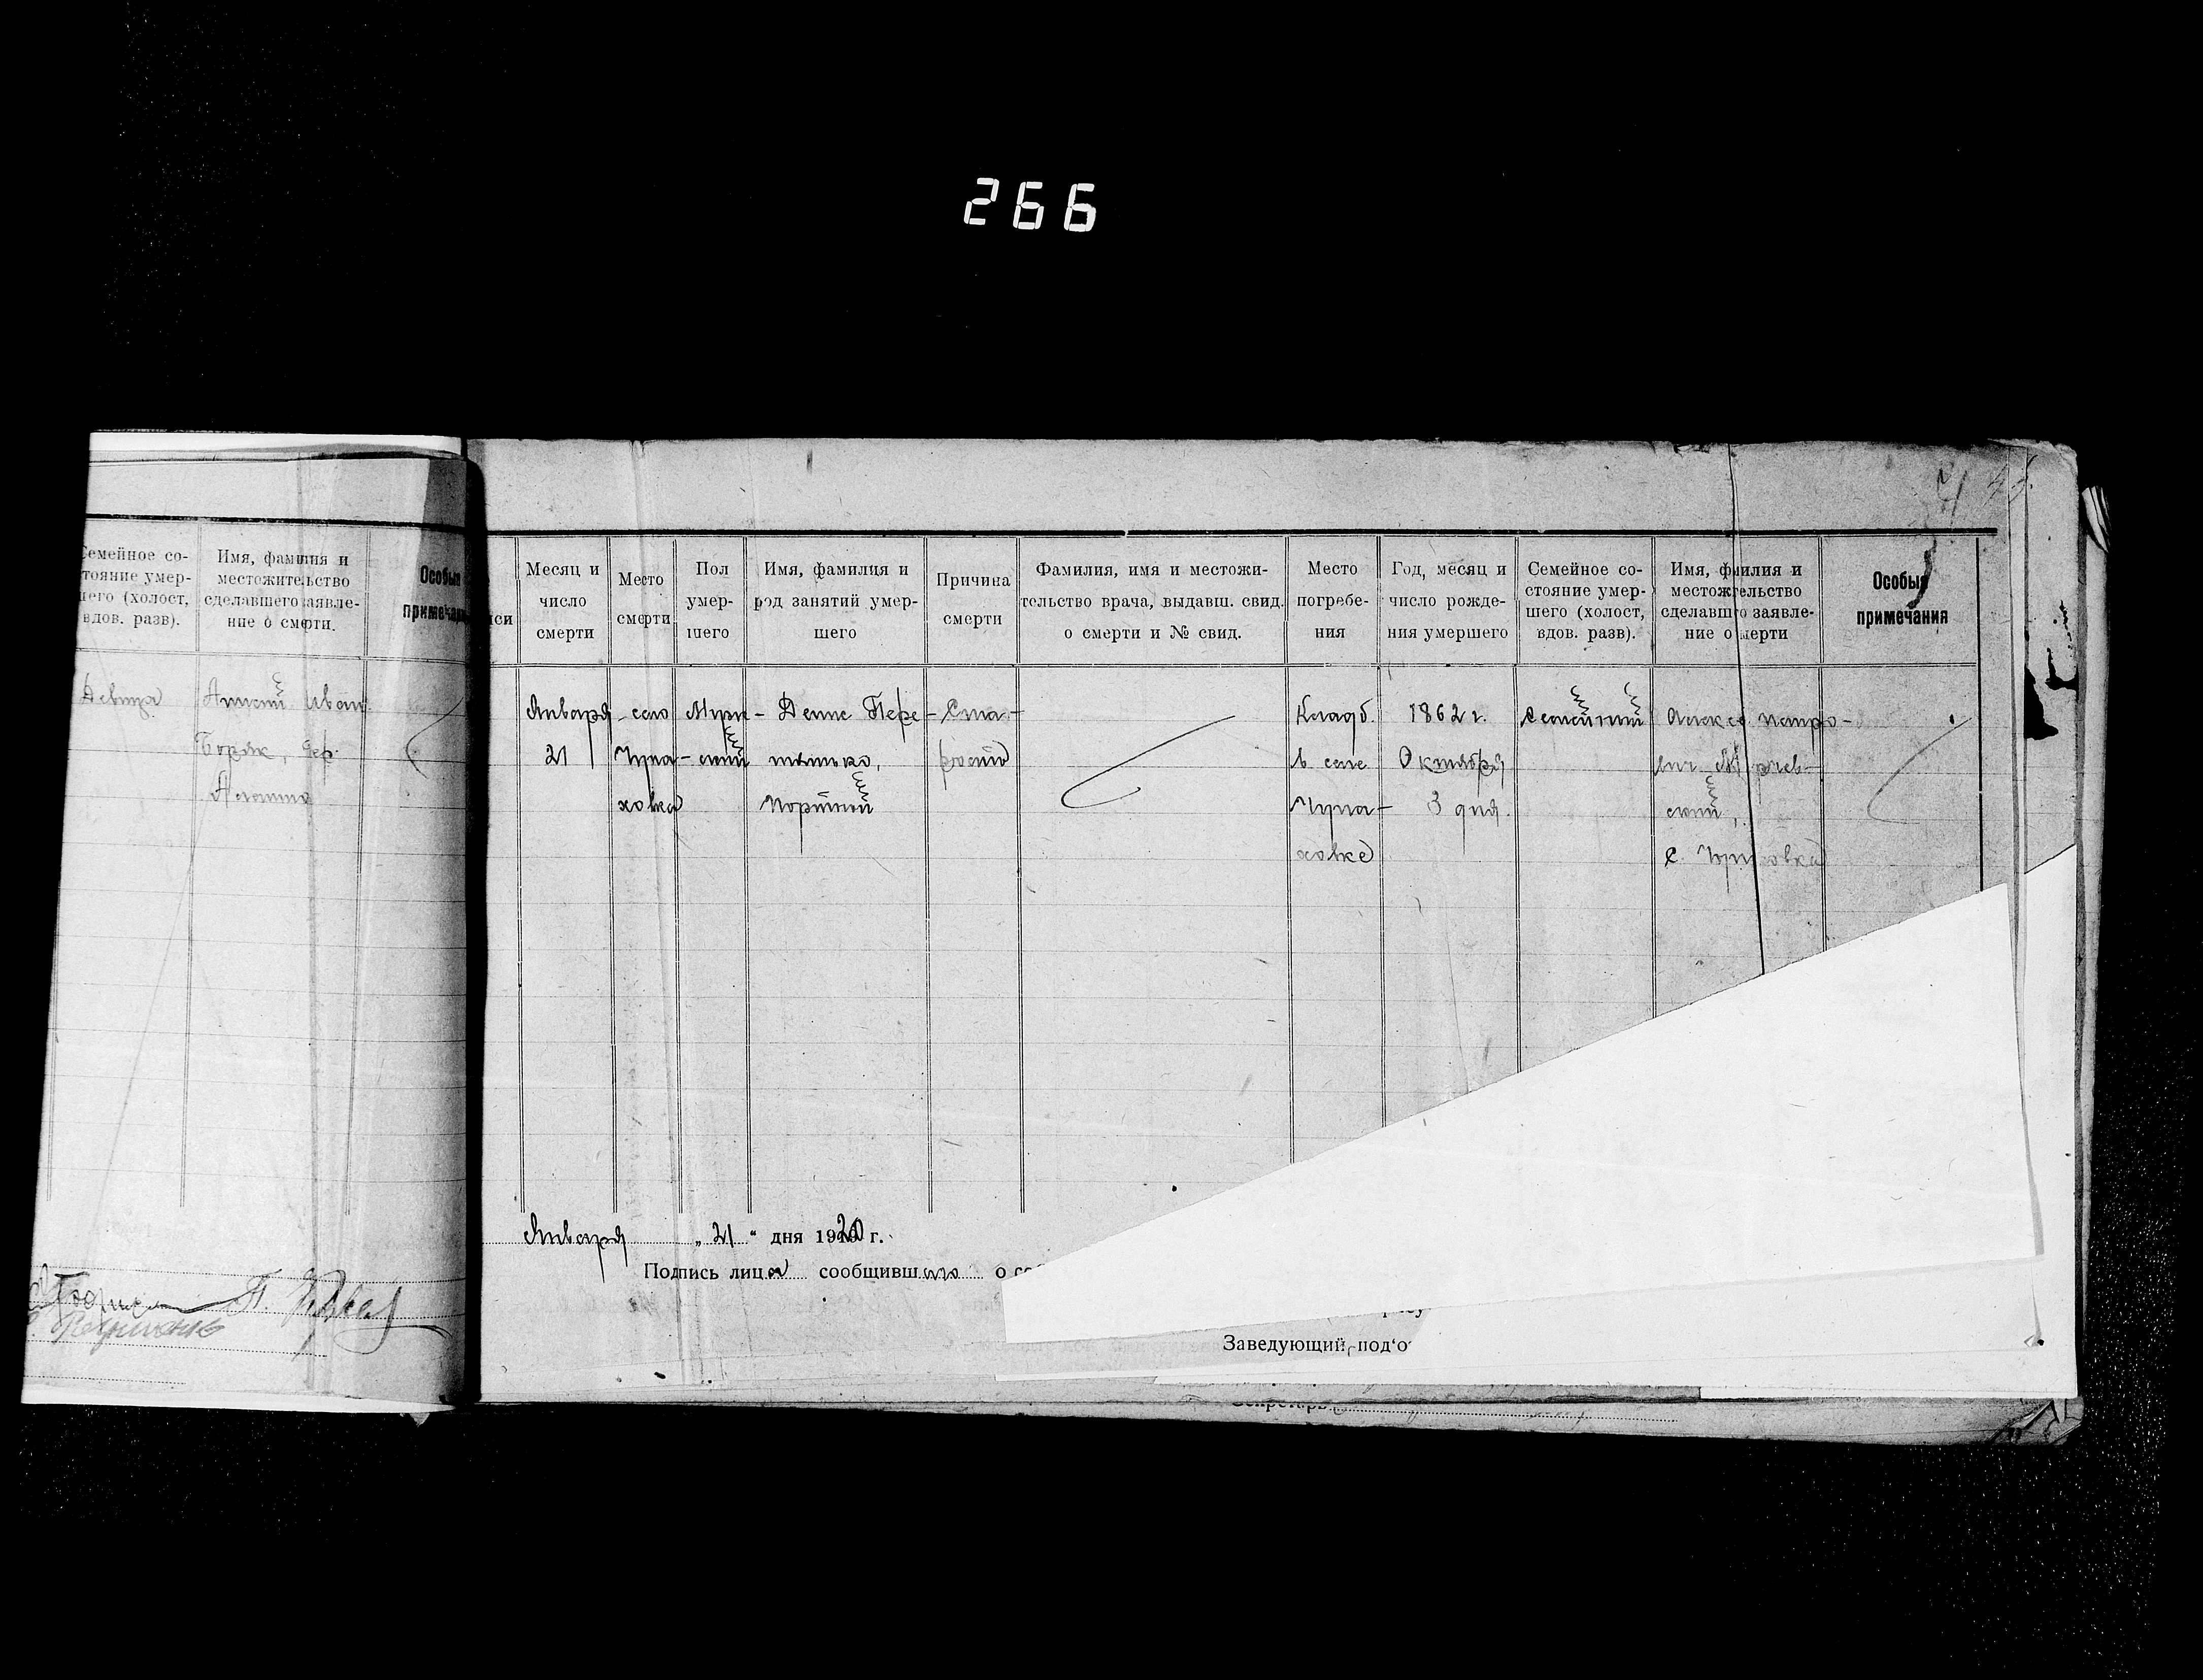 266
Семейное со-
тояние умер-
шего (холост,
вдов. разв).
Имя, фамилия и
местожительство
сделавшего заявле-
ние о смерти.
Особыя
примечания
Девица
Иван
Боряк, дер.
си
Месяц и
число
смерти
Место
смерти
Пол
умер-
шего
Имя, фамилия и
род занятий умер-
шего
Причина
смерти
Фамилия, имя и местожи-
тельство врача, выдавш. свид.
о смерти и № свид.
Место
погребе-
ния
Год, месяц и
число рожде-
ния умершего
Семейное со-
стояние умер-
шего (холост,
вдов. разв).
Имя, фамилия и
местожительство
сделавшго заявле-
ние о смерти
Особыя
примечания
Января
21
село
Чупа-
ховка
Муж-
ский
Денис Пере-
тятько,
портной
Ста-
рости
Кладб.
в селе
Чупа-
ховке
1862 г.
Октября
3 дня.
Семейный
Алексе Петро-
вич
ский,
с. Чупаховка
Января „ 21 “ дня 1920 г.
Подпись лица сообщившаго о со
Заведующий под‘о
Секретарь